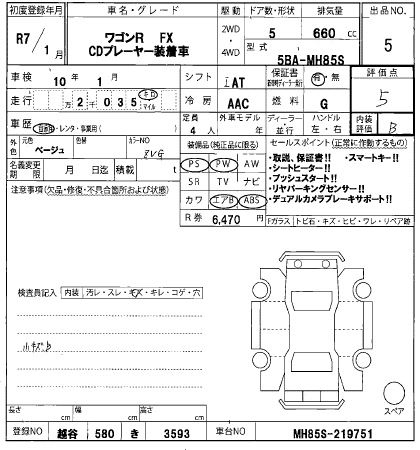 初度登録年月 車名・グレード 駆動 ドア数・形状 排気量 出品NO.
R7/1月 ワゴンR FX CDプレーヤー装着車 2WD・4WD 5 660 cc 5
型式 5BA-MH85S
車検 10年 1月 シフト IAT 保証書 有・無 評価点
走行 万 2千035 キロ マイル 冷房 AAC 燃料 G 5
車歴 自家用・レンタ・事業用( ) 定員 4人 外車モデル 年 ディーラー 並行 ハンドル 左・右 内装評価 B
外色 元色 ベージュ 色替 カラーNO ZVG 装備品(純正品に限る) セールスポイント(正常に作動するもの)
名義変更期限 月 日迄 積載 t PS PW AW
・取説、保証書!! ・スマートキー!!
・シートヒーター!!
注意事項(欠品・修復・不具合箇所および状態) SR TV ナビ ・プッシュスタート!!
・リヤパーキングセンサー!!
カワ エアB ABS ・デュアルカメラブレーキサポート!!
R券 6,470円 Fガラス トビ石・キズ・ヒビ・ワレ・リペア跡
検査員記入 内装 汚レ・スレ・キズ・キレ・コゲ・穴
小キズB
スペア
長さ cm 幅 cm 高さ cm
登録NO 越谷 580 き 3593 車台NO MH85S-219751